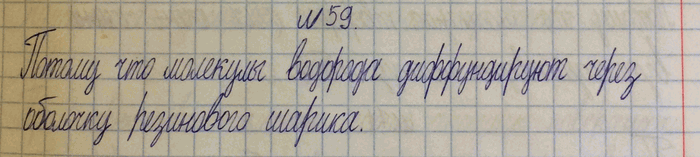 №59.
Потому что молекулы водорода диффундируют через
оболочку резинового шарика.